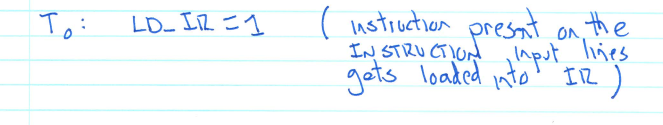 T₀: LD_IR = 1 ( instruction present on the
INSTRUCTION input lines
gets loaded into IR )